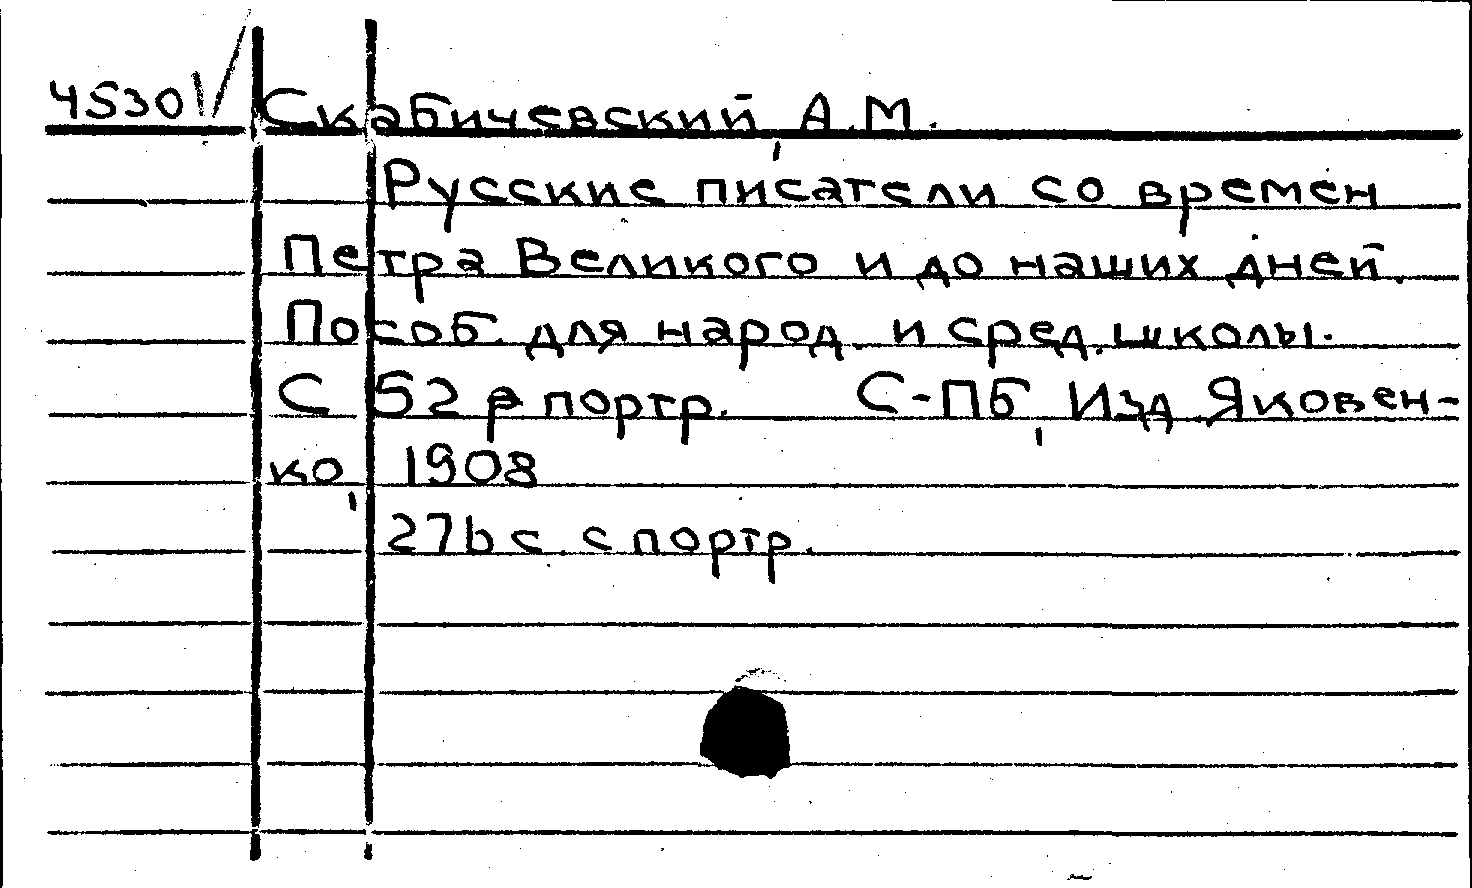 4530 V Скабичевский, А.М.
Русские писатели со времен
Петра Великого и до наших дней.
Пособ. для народ. и сред. школы.
С 52 портр. С-ПБ, Изд Яковен-
ко, 1908
276 с. с портр.